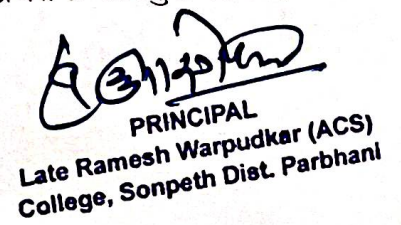 PRINCIPAL
Late Ramesh Warpudkar (ACS)
College, Sonpeth Dist. Parbhani